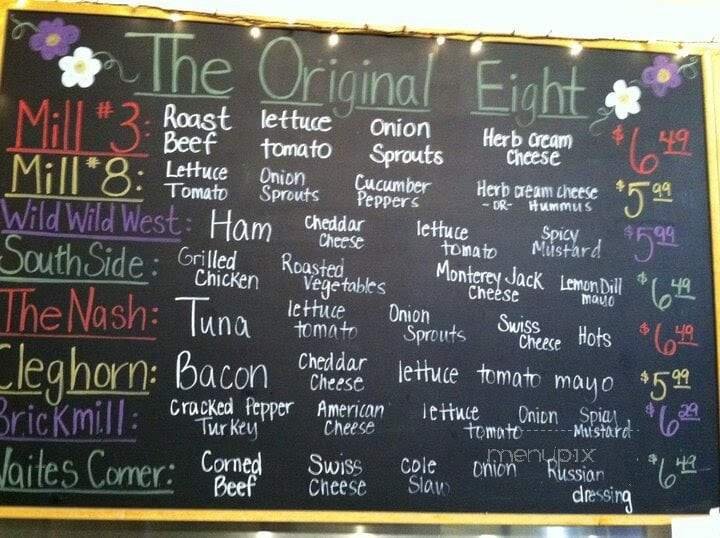 The Original Eight
Mill #3: Roast Beef lettuce tomato Onion Sprouts Herb Cream Cheese $6.49
Mill #8: Lettuce Tomato Onion Sprouts Cucumber Peppers Herb cream cheese -OR- Hummus $5.99
Wild Wild West: Ham Cheddar Cheese lettuce tomato Spicy Mustard $5.99
South Side: Grilled Chicken Roasted Vegetables Monterey Jack Cheese Lemon Dill mayo $6.49
The Nash: Tuna lettuce tomato Onion Sprouts Swiss Cheese Hots $6.49
Cleghorn: Bacon Cheddar Cheese lettuce tomato mayo $5.99
Brickmill: Cracked Pepper Turkey American Cheese lettuce tomato Onion Spicy Mustard $6.29
Waites Corner: Corned Beef Swiss Cheese Cole Slaw onion Russian dressing $6.49
menupix